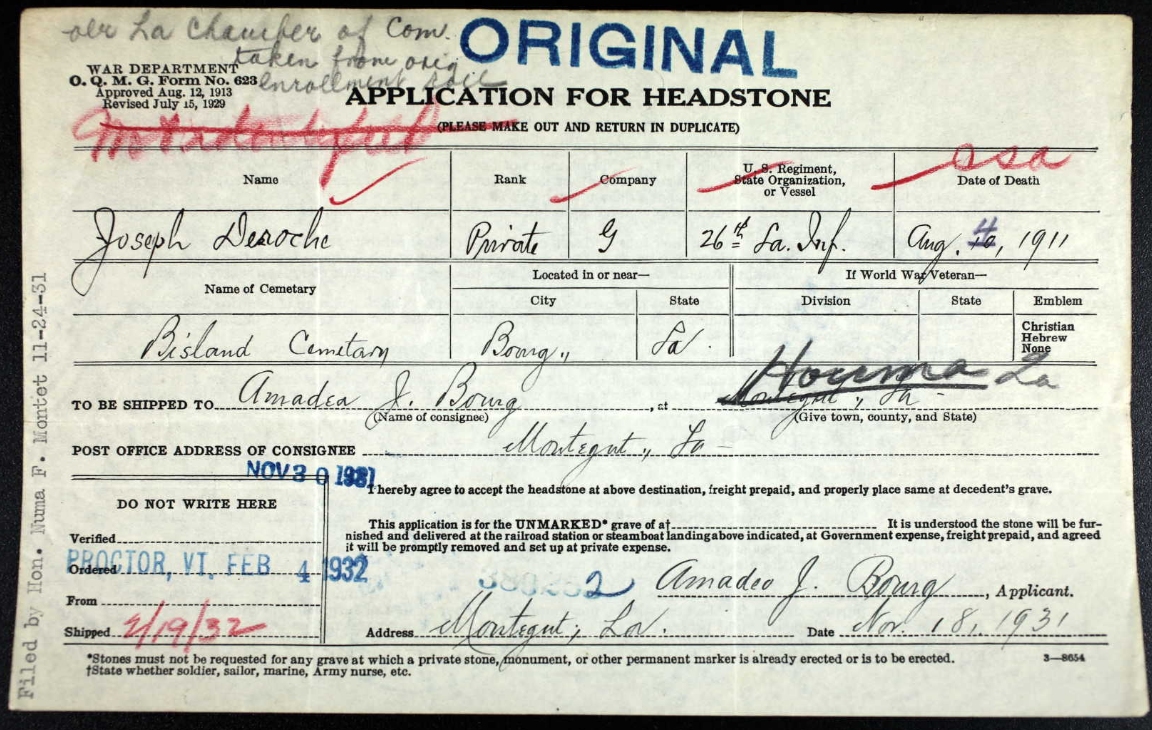 ORIGINAL
per La Chamber of Com.
taken from orig
enrollment roll
WAR DEPARTMENT
O. Q. M. G. Form No. 623
Approved Aug. 12, 1913
Revised July 15, 1929
APPLICATION FOR HEADSTONE
(PLEASE MAKE OUT AND RETURN IN DUPLICATE)
Not identified
CSA
Name Rank Company U. S. Regiment, State Organization, or Vessel Date of Death
Joseph Deroche Private G 26th La. Inf. Aug. 4, 1911
Name of Cemetery Located in or near— If World War Veteran—
City State Division State Emblem
Bisland Cemetary Bourg, La. Christian
Hebrew
None
Houma La
TO BE SHIPPED TO Amadeo J. Bourg, at Montegut, La
(Name of consignee) (Give town, county, and State)
POST OFFICE ADDRESS OF CONSIGNEE Montegut, La
NOV 30 1931
I hereby agree to accept the headstone at above destination, freight prepaid, and properly place same at decedent's grave.
DO NOT WRITE HERE
This application is for the UNMARKED* grave of a† It is understood the stone will be fur-
nished and delivered at the railroad station or steamboat landing above indicated, at Government expense, freight prepaid, and agreed
it will be promptly removed and set up at private expense.
Verified
Ordered PROCTOR, VT. FEB 4 1932
Amadeo J. Bourg, Applicant.
From
Shipped 2/19/32 Address Montegut, La. Date Nov. 18, 1931
*Stones must not be requested for any grave at which a private stone, monument, or other permanent marker is already erected or is to be erected. 3—8654
†State whether soldier, sailor, marine, Army nurse, etc.
Filed by Hon. Numa F. Montet 11-24-31